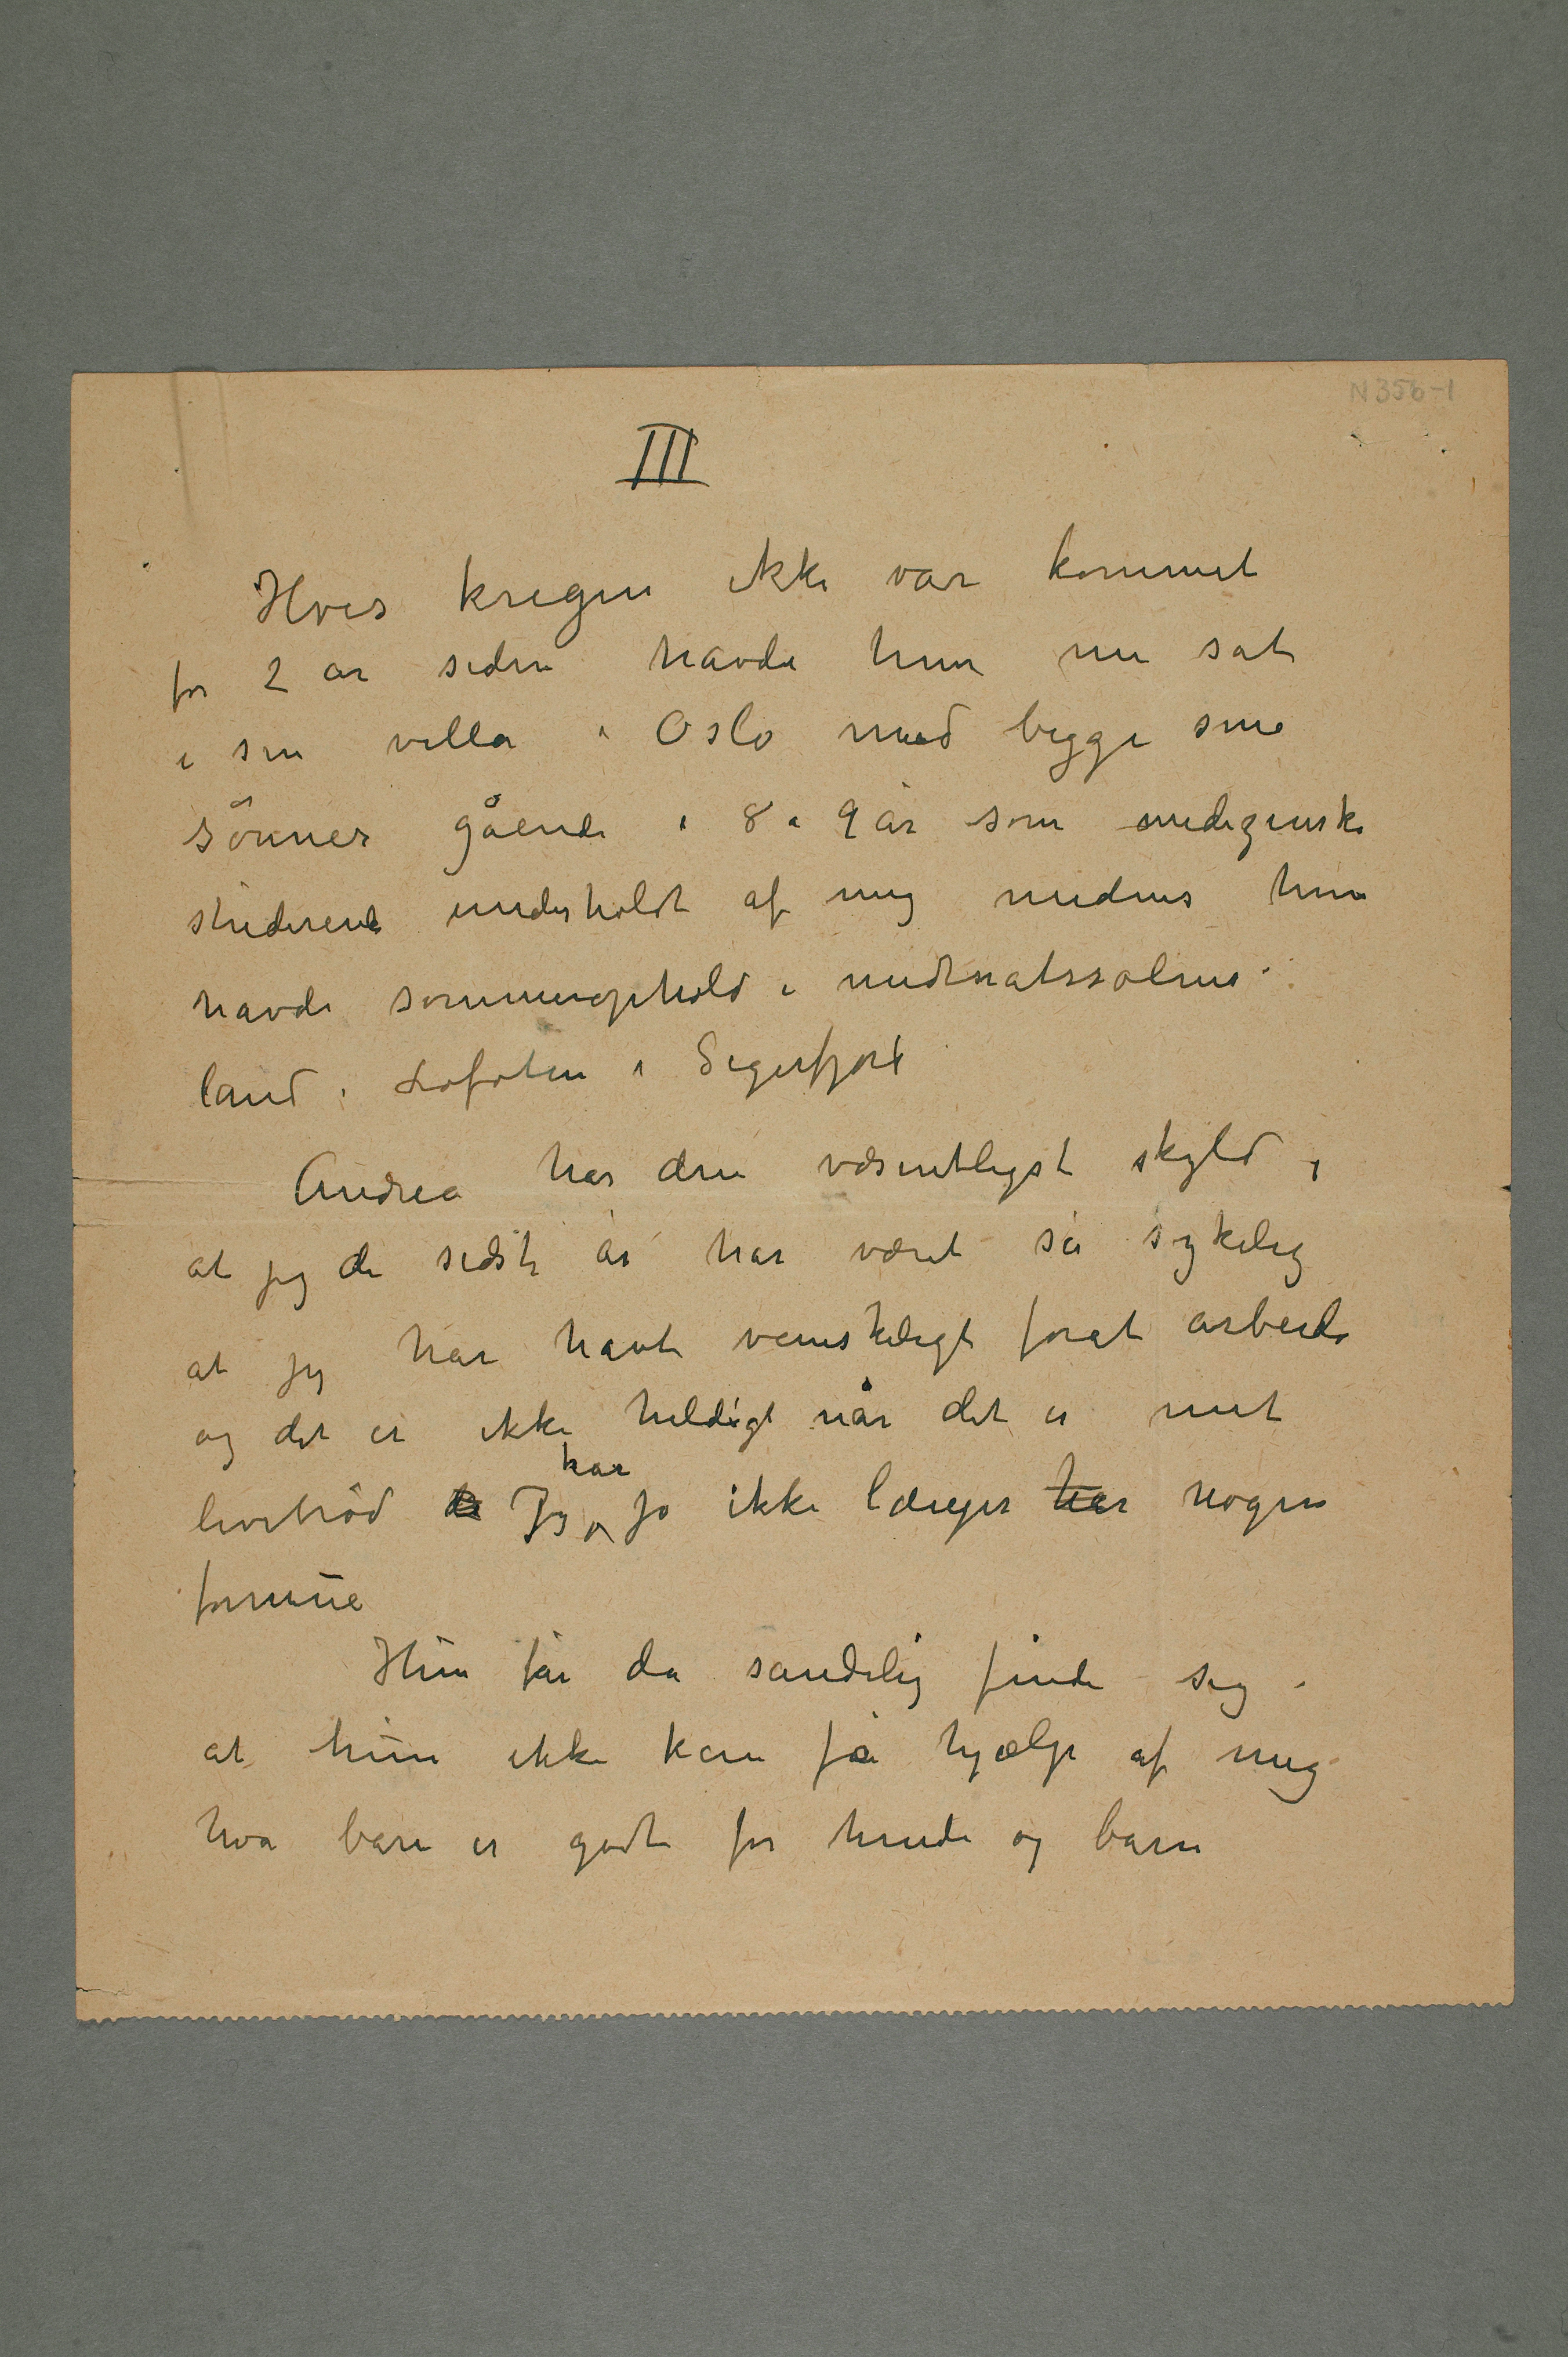 N 356-1
III
Hvis krigen ikke var kommet
for 2 år siden havde hun nu sat
i sin villa i Oslo med begge sine
sønner gående i 8 a 9 år som medizinske
studerende underholdt af mig medens hun
havde sommerophold i midtnatssolens
land i Lofoten i Sigerfjord
Andrea har den væsentligste skyld i
at jeg de sidste år har været så sykelig
at jeg har havt vanskeligt forat arbeide
og det er ikke heldigt når det er mit
har
levebrød Jeg jo ikke længer har nogen
formue
Hun får da sandelig finde sig i
at hun ikke kan få hjælp af mig
hva bare er godt for hende og barn